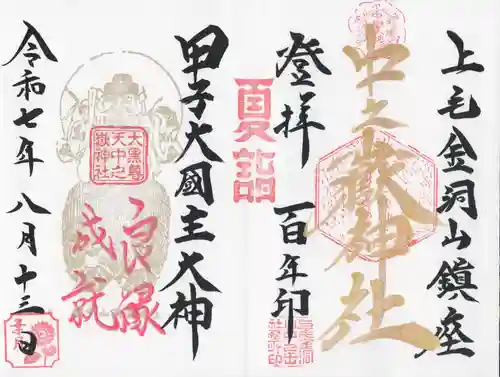 上毛金洞山鎮座
中之嶽神社
登拝
百年印
夏詣
甲子大國主大神
大黒尊天中之嶽神社
良縁
成就
令和七年
八月十三日